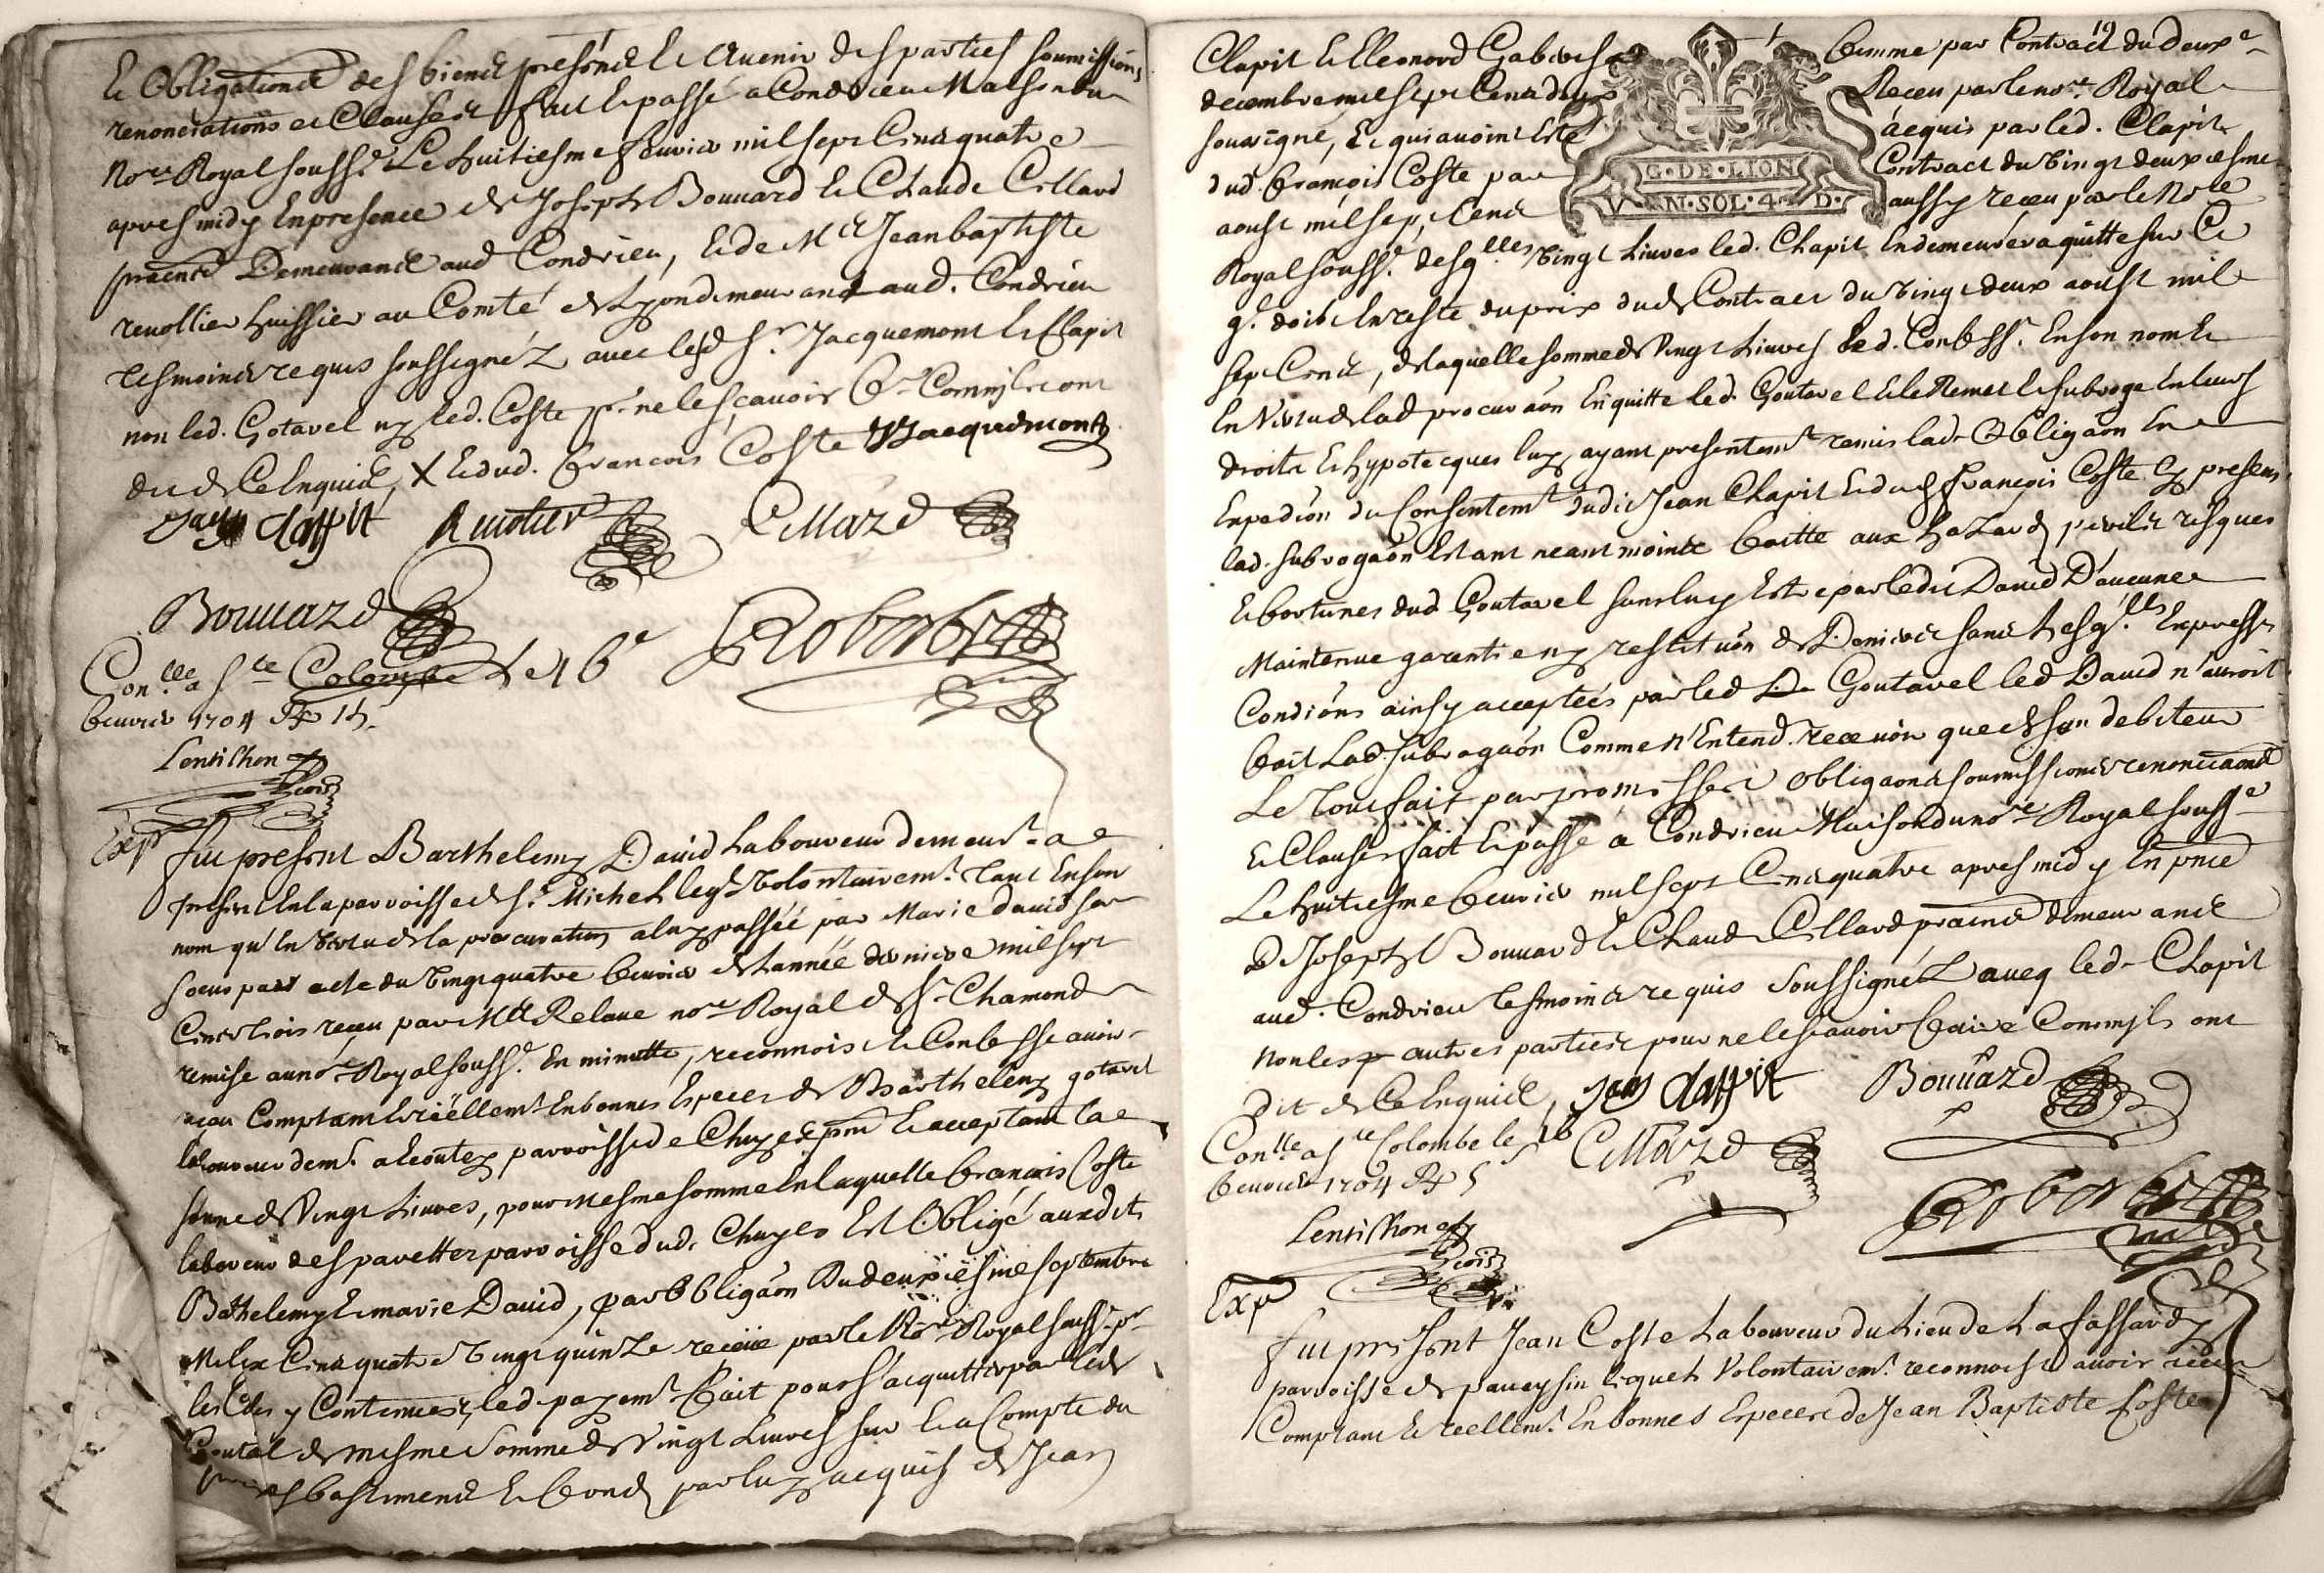 Et Obligationes des bienes presents Et Avenir des parties soumissions
renonciations et Clauses fait Et passé a Condrieu Maison du
No.re Royal souss.é Le huitiesme feuvrier mil sept Cens quatre
apres midy En presence de Joseph Bouuard Et Claude Cillard
Demeurants aud Condrieu, Et de M.e Jean baptiste
reuollier huissier au Comté de Lyon demeurant aud. Condrieu
tesmoins requis soussignéz avec lesd s.r Jacquemont Et Clapit
non led. Gotavel ny led. Coste p.r ne le sçauoir
de Ce Enquis, X Et dud. francois Coste Jacquemont
Jean Clappit Reuolier Cillazd
Bouuazd
Con.lle a S.te Colombe Le 16.e
feuvrier 1704
Lentilhon
Exp
fut present Barthelemy Dauid Laboureur demeur.t a
en la parroisse de S.t Michel leq.l volontairem.t tant En son
nom qu'En vertu de la procuration a luy passée par Marie dauid sa
soeur par acte du vingt quatre feuvrier de L'année derniere mil sept
Cens trois receu par M.e Relaue no.re Royal de S.t Chamond
remise au no.re Royal souss.é En minutte, reconnois Et Confesse auoir
receu Comptant Et reéllem.t En bonnes Especes de Barthelemy gotavel
laboureur dem.t a parroisse de Chuyes pnt Et acceptant la
somme de Vingt Liures, pour mesme somme En laquelle francois Coste
laboureur des pauettes parroisse dud. Chuyes Est Obligé auxdits
Bathelemy Et marie Dauid, par Obligaõn du deuxiesme septembre
Mil six Cens quatre vingt quinze receüe par le No.re Royal souss.é p.r
les Contenues, led. payem.t fait pour s'acquitter par led
Goutal de mesme Somme de Vingt Liures sur Et a Compte du
bastiments Et fonds par luy acquis de Jean
19
Clapit Et Elleonord Gabert sa femme par Contract du deux.e
decembre mil sept Cens deux Receu par le no.re Royal
soussigné, Et qui auoint Esté acquis par led. Clapit
dud. francois Coste par Contract du vingt deuxiesme
aoust mil sept Cens aussy receu par le No.re
G. DE. LION
V N. SOL. 4 D.
Royal souss.é desq.lles vingt Liures led. Clapit En demeurera quitte sur Ce
q.l doit En reste du prix dud Contract du vingt deux aoust mil
sept Cens, de laquelle somme de Vingt Liures Led. Confess.t En son nom Et
En Vertu de lad procuraõn En quitte led. Goutavel Et le Remet Et subroge En leurs
droits Et hypotecques luy ayant presentem.t remis lad. Obligaõn En
Expediõn du Consentem.t dudit Jean Clapit Et dud françois Coste Cy presens,
lad. subrogaõn Estant neantmoints faitte aux hazards perils risques
Et fortunes dud Goutavel sans luy Estre par ledit Dauid D'aucune
Maintenue garentie ny restitutiõn de Deniers sans Lesq.lles Expresses
Condiõns ainsy acceptées par led Goutavel led Dauid n'auroit
fait Lad. subrogaõn Comme n'Entend receuoir que de son debiteur
Le tout fait par promesses obligaons soumissions renonciaons
Et Clauses fait Et passé a Condrieu Maison du no.re Royal souss.é
Le huitiesme feuvrier mil sept Cens quatre apres midy En pnce
De Joseph Bouuard Et Claude Cillard demeurants
aud. Condrieu tesmoins requis Soussignéz aueq led. Clapit
Non les autres parties pour ne le scauoir faire Comm'ils ont
dit de Ce Enquis, Jean Clappit Bouuazd
Con.lle a S.te Colombe le 16 Cillazd
feuvrier 1704
Lentilhon
Exp
fut present Jean Coste Laboureur du Lieu de La fassardy
parroisse de pauezin lequel Volontairem.t reconnoist auoir receu
Comptant Et reellem.t En bonnes Especes de Jean Baptiste Coste